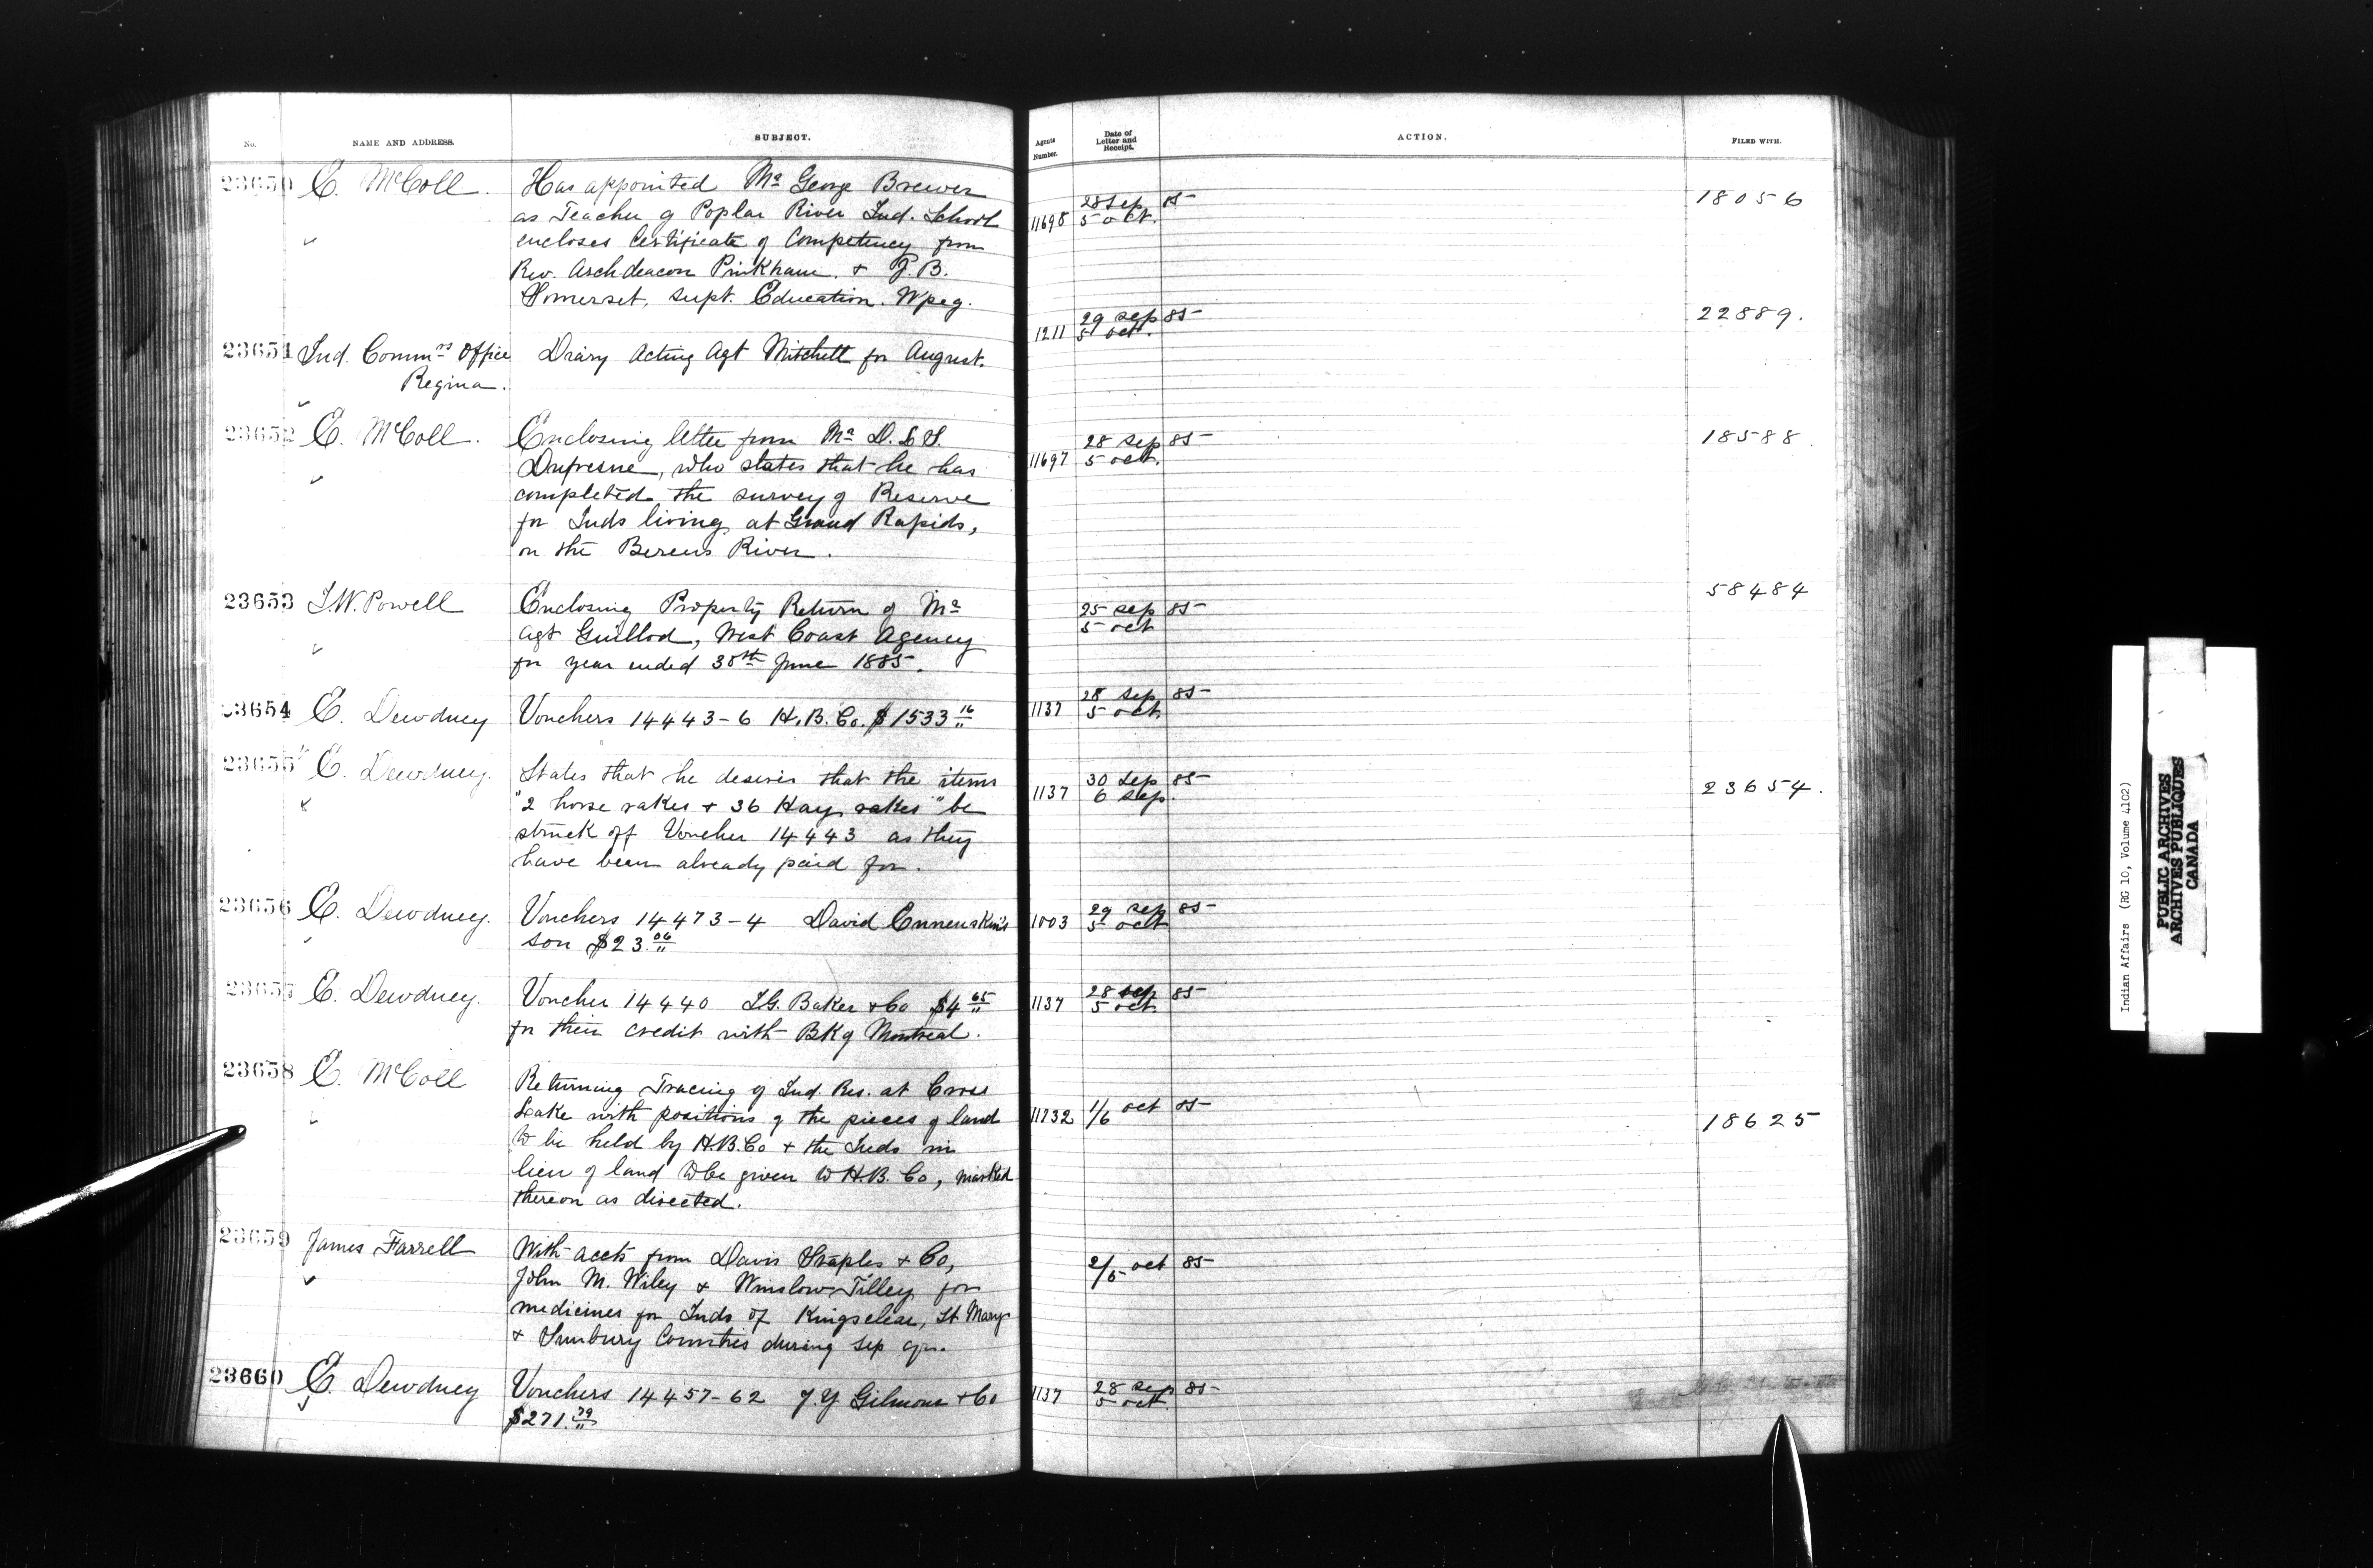 No.
NAME AND ADDRESS.
SUBJECT.
Agents Number.
Date of Letter and Receipt.
ACTION.
FILED WITH.
23650 E. McColl. Has appointed Mr George Brewer
as Teacher of Poplar River Ind. School
encloses Certificate of Competency from
Rev. Archdeacon Pinkham. & J. B.
Somerset, Supt. Education. Wpeg.
11698 28 Sep 85
5 oct.
18056
23651 Ind. Commrs Office Diary Acting Agt Mitchell for August.
Regina.
1211 29 sep 85
5 oct.
22889.
23652 E. McColl. Enclosing letter from Mr D. L. S.
Dufresne, who states that he has
completed the survey of Reserve
for Inds living at Grand Rapids,
on the Berens River.
11697 28 sep 85
5 oct.
18588.
23653 I.W. Powell Enclosing Property Return of Mr
Agt Guillod, West Coast Agency
for year ended 30th June 1885.
25 sep 85
5 oct
58484
23654 E. Dewdney Vouchers 14443-6 H.B. Co. $1533 16/"
1137 28 sep 85
5 oct.
23655 E. Dewdney. States that he desires that the items
"2 horse rakes & 36 Hay rakes" be
struck off Voucher 14443 as they
have been already paid for.
1137 30 Sep 85
6 Sep.
23654.
23656 E. Dewdney. Vouchers 14473-4 David
son $23. 06/"
1003 29 sep 85
5 oct
23657 E. Dewdney. Voucher 14440 I.G. Baker & Co $4 65/"
for their credit with Bk of Montreal.
1137 28 sep 85
5 oct.
23658 E. McColl Returning Tracing of Ind. Res. at Cross
Lake with positions of the pieces of land
to be held by H.B. Co & the Inds in
lieu of land to be given to H.B. Co, marked
thereon as directed.
11732 1/6 oct 85
18625
23659 James Farrell With accts from Davis Staples & Co,
John M. Wiley & Winslow Tilley for
medicines for Inds of Kingsclear, St Marys
& Sunbury Counties during Sep qr.
2/5 oct 85
23660 E. Dewdney Vouchers 14457-62 J.Y Gilmour & Co
$271. 79/"
1137 28 sep 85
5 oct.
Indian Affairs (RG 10, Volume 4102)
PUBLIC ARCHIVES
ARCHIVES PUBLIQUES
CANADA